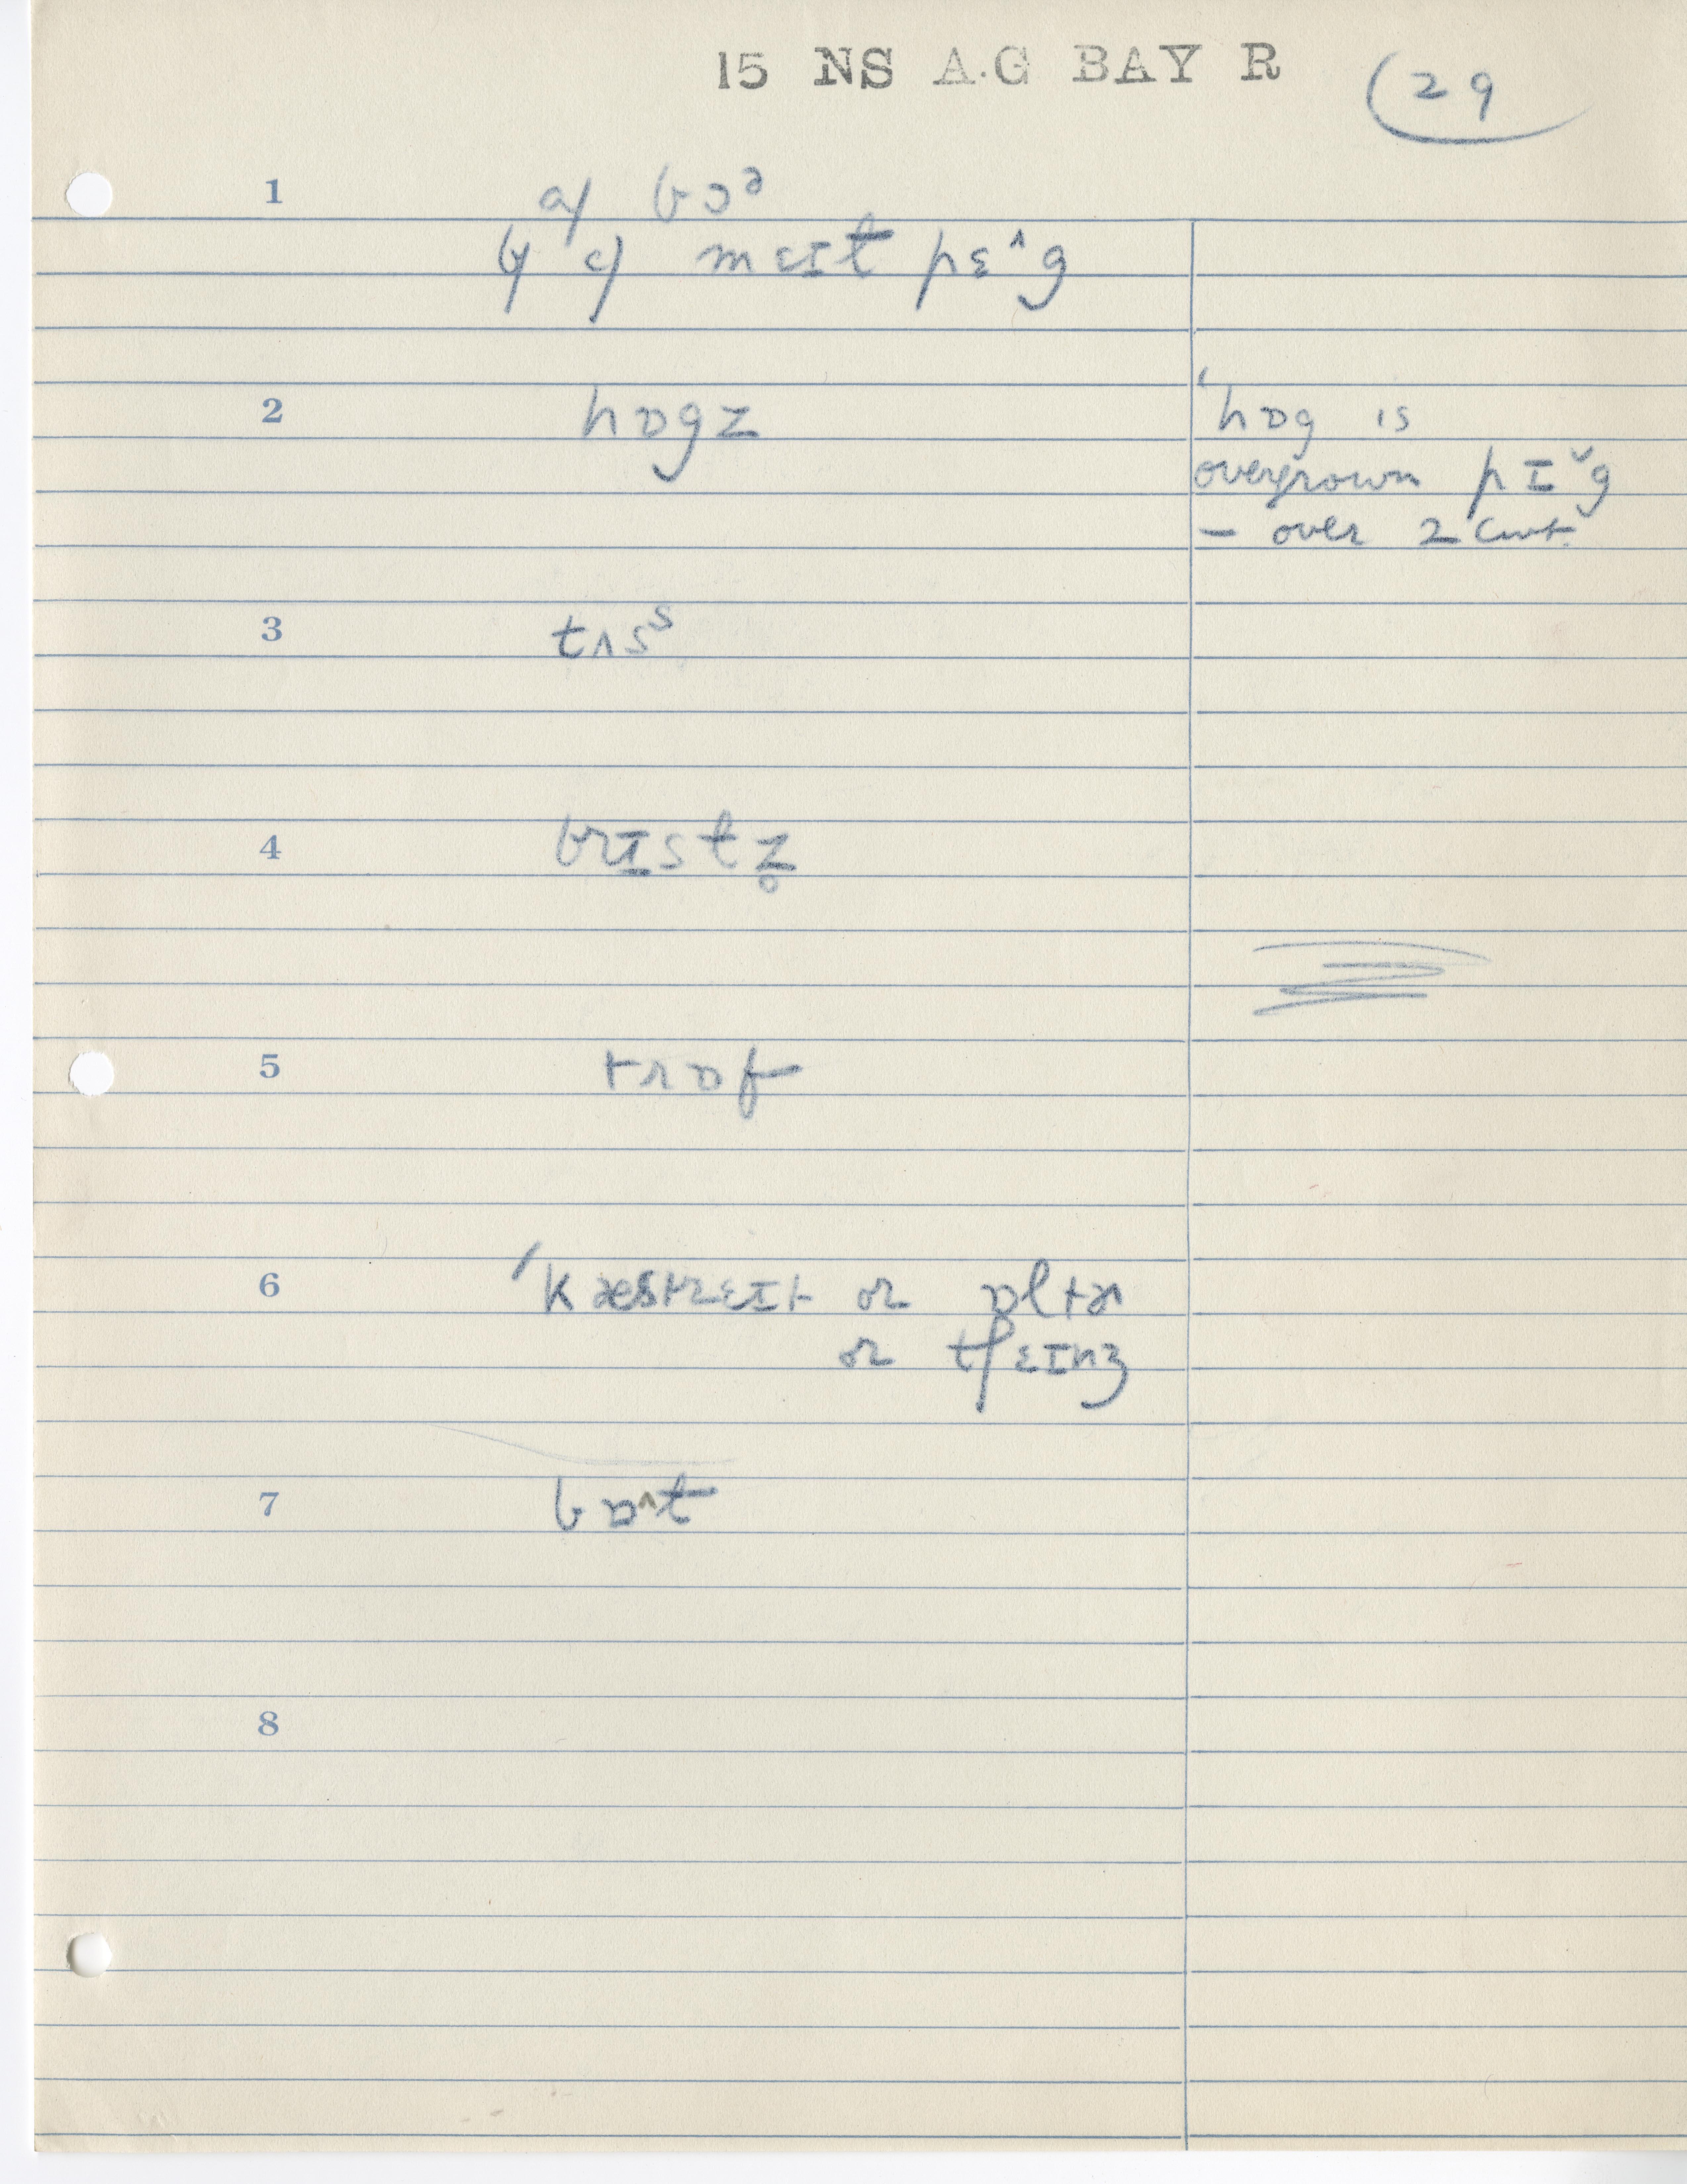 15 NS A.G BAY R (29
1 a/ bɔᵊ
b/ c/ mɛɪt pɛ^g
2 hɒgz
'hɒg is
overgrown pɪˇg
– over 2 cwt.
3 tʌsˢ
4 brɪstz̥
5 trɒf
6 'kæstrɛɪt or ɒltɚ
or tʃɛɪnʒ
7 bɒ^t
8